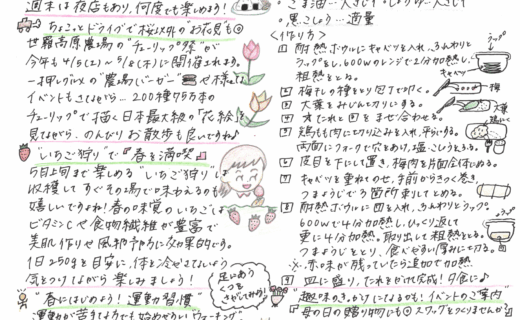 週末は夜店もあり、何度でも楽しめるよう!
ちょこっとドライブで桜以外の"お花見も
世羅高原農場の"チューリップ祭"が
今年も4/5(土)〜5/8(木)に開催される。
一押しグルメの"農場バーガー"や様々な
イベントもさながら…200種75万本の
チューリップで描く日本最大級の"花絵"を
見ながら、のんびりお散歩も良いですね♪
"いちご狩り"で春を満喫
5月上旬まで楽しめる"いちご狩り"は
収穫してすぐその場で味わえるのも
嬉しいですよね!春の味覚のいちごは
ビタミンCや食物繊維が豊富で
美肌作りや風邪予防に効果的です。
1日250gを目安に、体を冷やさないよう
気をつけながら楽しみましょう!
足にあう
くつを
さがしてみよう!
"春にはじめよう!運動習慣
運動が苦手な方でも始めやすいウォーキング
ごま油…大さじ1
黒こしょう…適量
<作り方>
1 耐熱ボウルにキャベツを入れ、ふんわりと
ラップをし、600wのレンジで2分加熱し、
粗熱をとる。
ラップ
キャベツ
2 梅干しの種をとり包丁で叩く。
梅
3 大葉をみじん切りにする。
大葉
4 たれと をまぜ合わせる。
5 鶏もも肉に切り込みを入れ、平らにする。
両面にフォークで穴をあけ、塩こしょうをふる。
6 皮目を下にして置き、梅肉を片面全体にぬる。
7 キャベツを重ねてのせ、手前からきつく巻き、
つまようじで3箇所刺してとめる。
8 耐熱ボウルに を入れ、ふんわりとラップ。
600wで4分加熱し、ひっくり返して
更に4分加熱。取り出して粗熱をとる。
つまようじをとり、食べやすい厚みに切る。
※赤味が残っていたら追加で加熱
9 皿に盛り、たれをかけて完成!夕食に♪
"趣味のきっかけになるかも!イベントのご案内
母の日の贈り物にも◎スワッグをつくりませんか